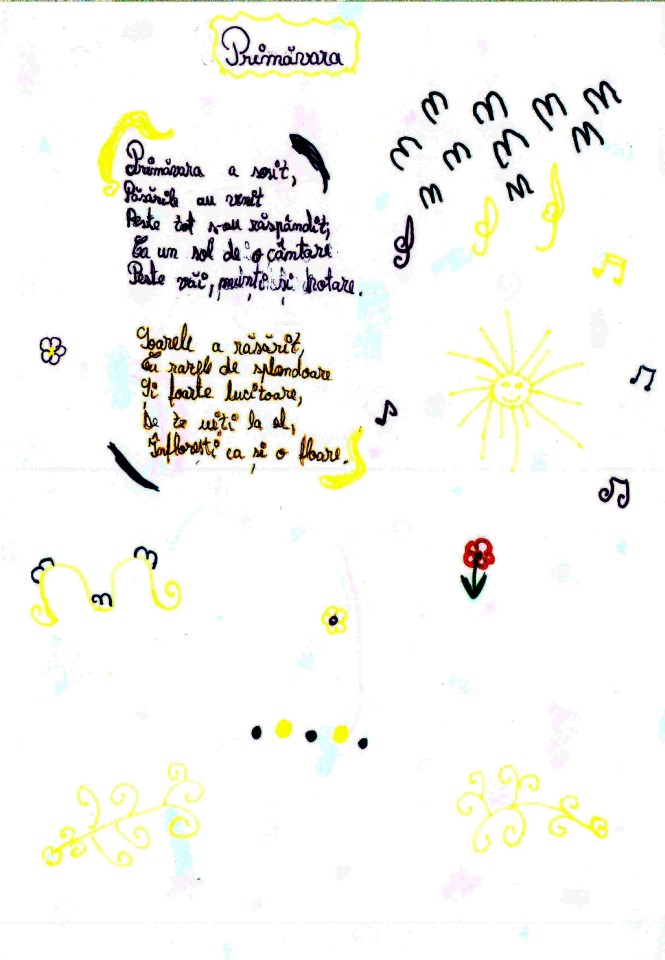 Primăvara
Primăvara a sosit,
Păsările au venit
Peste tot s-au răspândit,
Ca un sol de o cântare
Peste văi, munți și hotare.
Soarele a răsărit,
Cu razele de splendoare
Și foarte lucitoare,
De te uiți la el,
Înflorești ca și o floare.